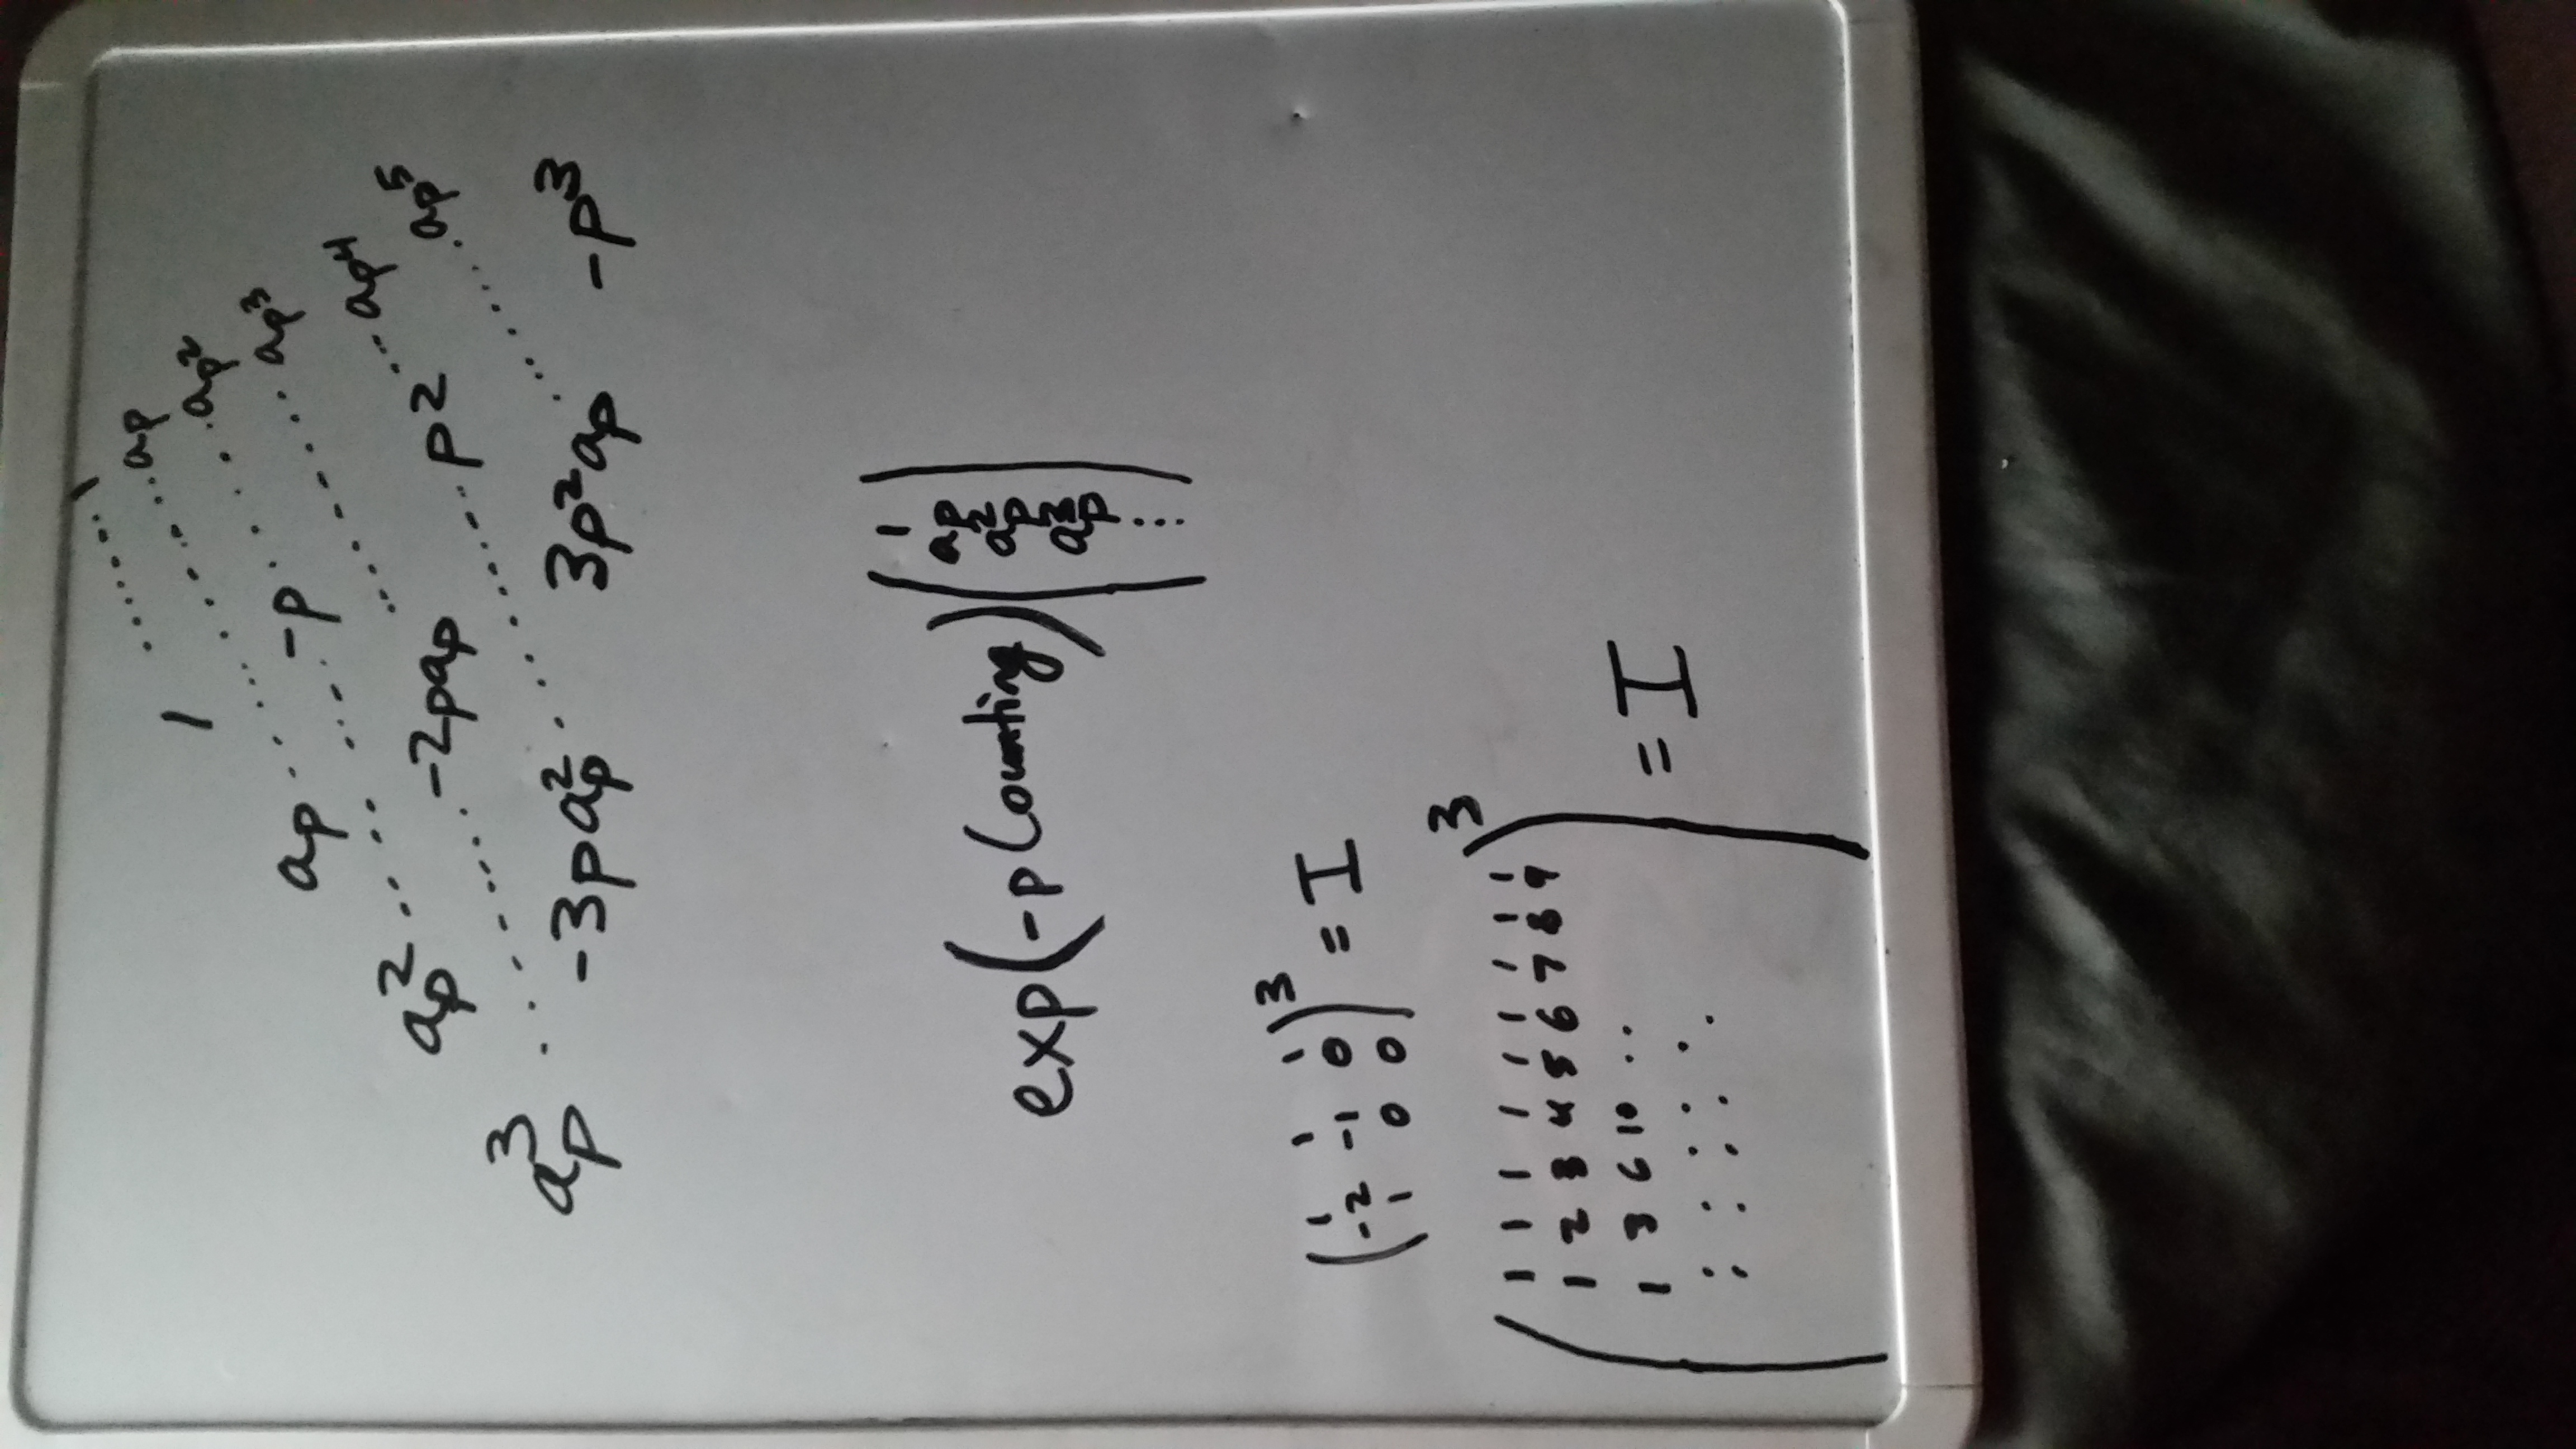 1
1 a_p
a_p -p a_p²
a_p² -2pa_p p² a_p³
a_p³ -3pa_p² 3p²a_p -p³ a_p⁴ a_p⁵
exp(-p Counting) ( 1
a_p
a_p²
a_p³
⋮ )
( 1 1 1
-2 -1 0
1 0 0 )³ = I
( 1 1 1 1 1 1 1 1 1
1 2 3 4 5 6 7 8 9
1 3 6 10 ..
: : : : . . )³ = I